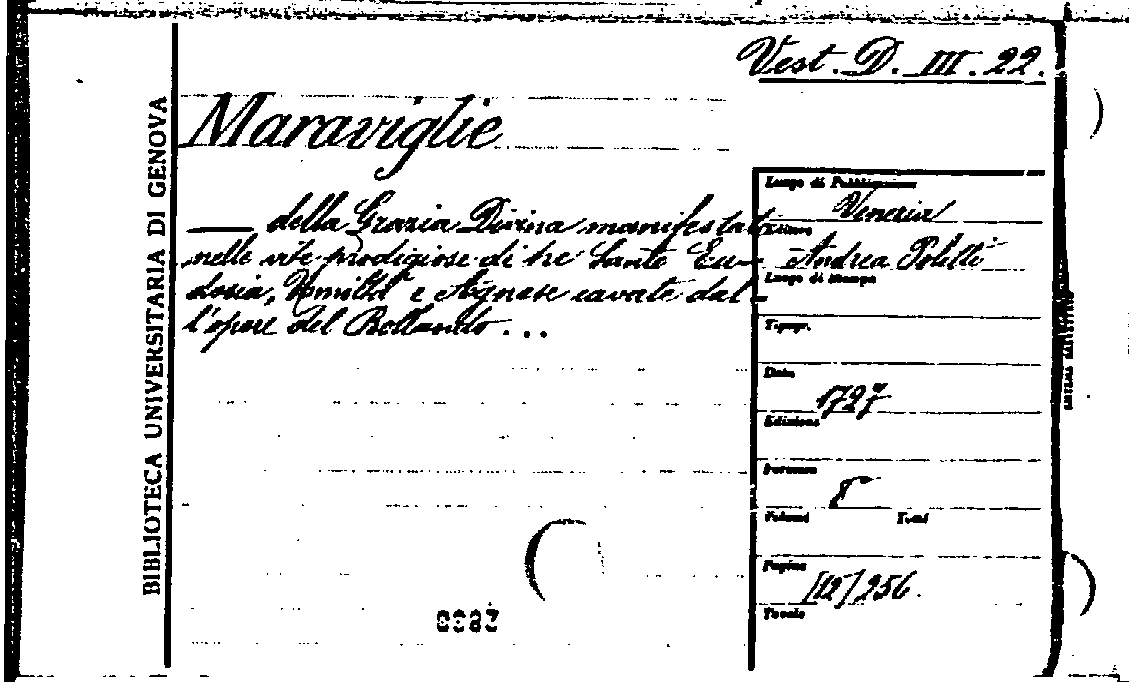 Vest. D. III. 22.
BIBLIOTECA UNIVERSITARIA DI GENOVA
Maraviglie
della Grazia Divina manifestat
nelle vite prodigiose di tre Sante Eu-
dosia, e Agnese cavate dal-
l'opere del Bollando...
Luogo di Pubblicazione
Venezia
Editore
Andrea Poletti
Luogo di Stampa
Tipogr.
Data
1727
Edizione
Formato
8°
Volumi Tomi
Pagine
[12] 256.
Tavole